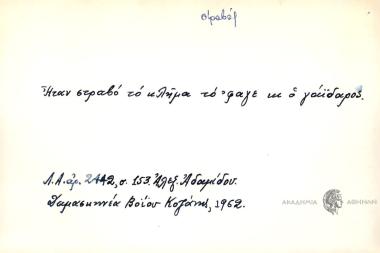 στραβός
Ἦταν στραβό τὸ κλῆμα τό 'φαγε κι ὁ γάϊδαρος.
Λ.Α. ἀρ. 2442, σ. 153. Ἀλεξ. Ἀδαμίδου.
Δαμασκηνέα Βοΐου Κοζάνης, 1962.
ΑΚΑΔΗΜΙΑ ΑΘΗΝΩΝ